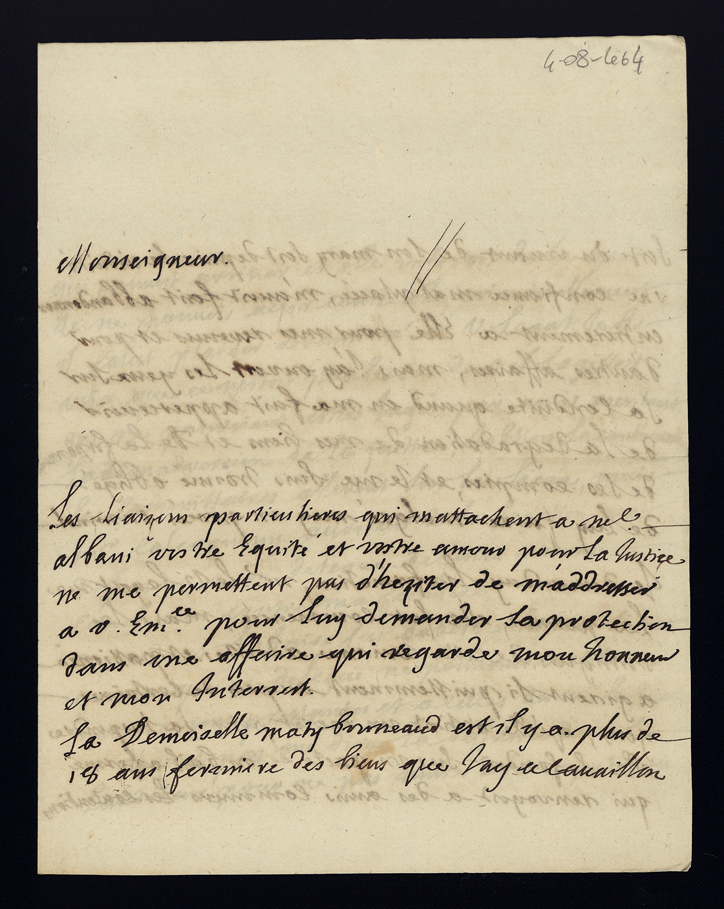 4-08-4064
Monseigneur.
Les Liaizons particulieres qui mattachent a
albani vostre Equité et vostre amour pour la Justice
ne me permettent pas d'heziter de m'addresser
a v. Em.ce pour luy demander sa protection
dans une affaire qui regarde mon honneur
et mon Interrest.
La Demoiselle maty bonneaud est il y a plus de
18 ans fermiere des biens que J'ay a Cavaillon